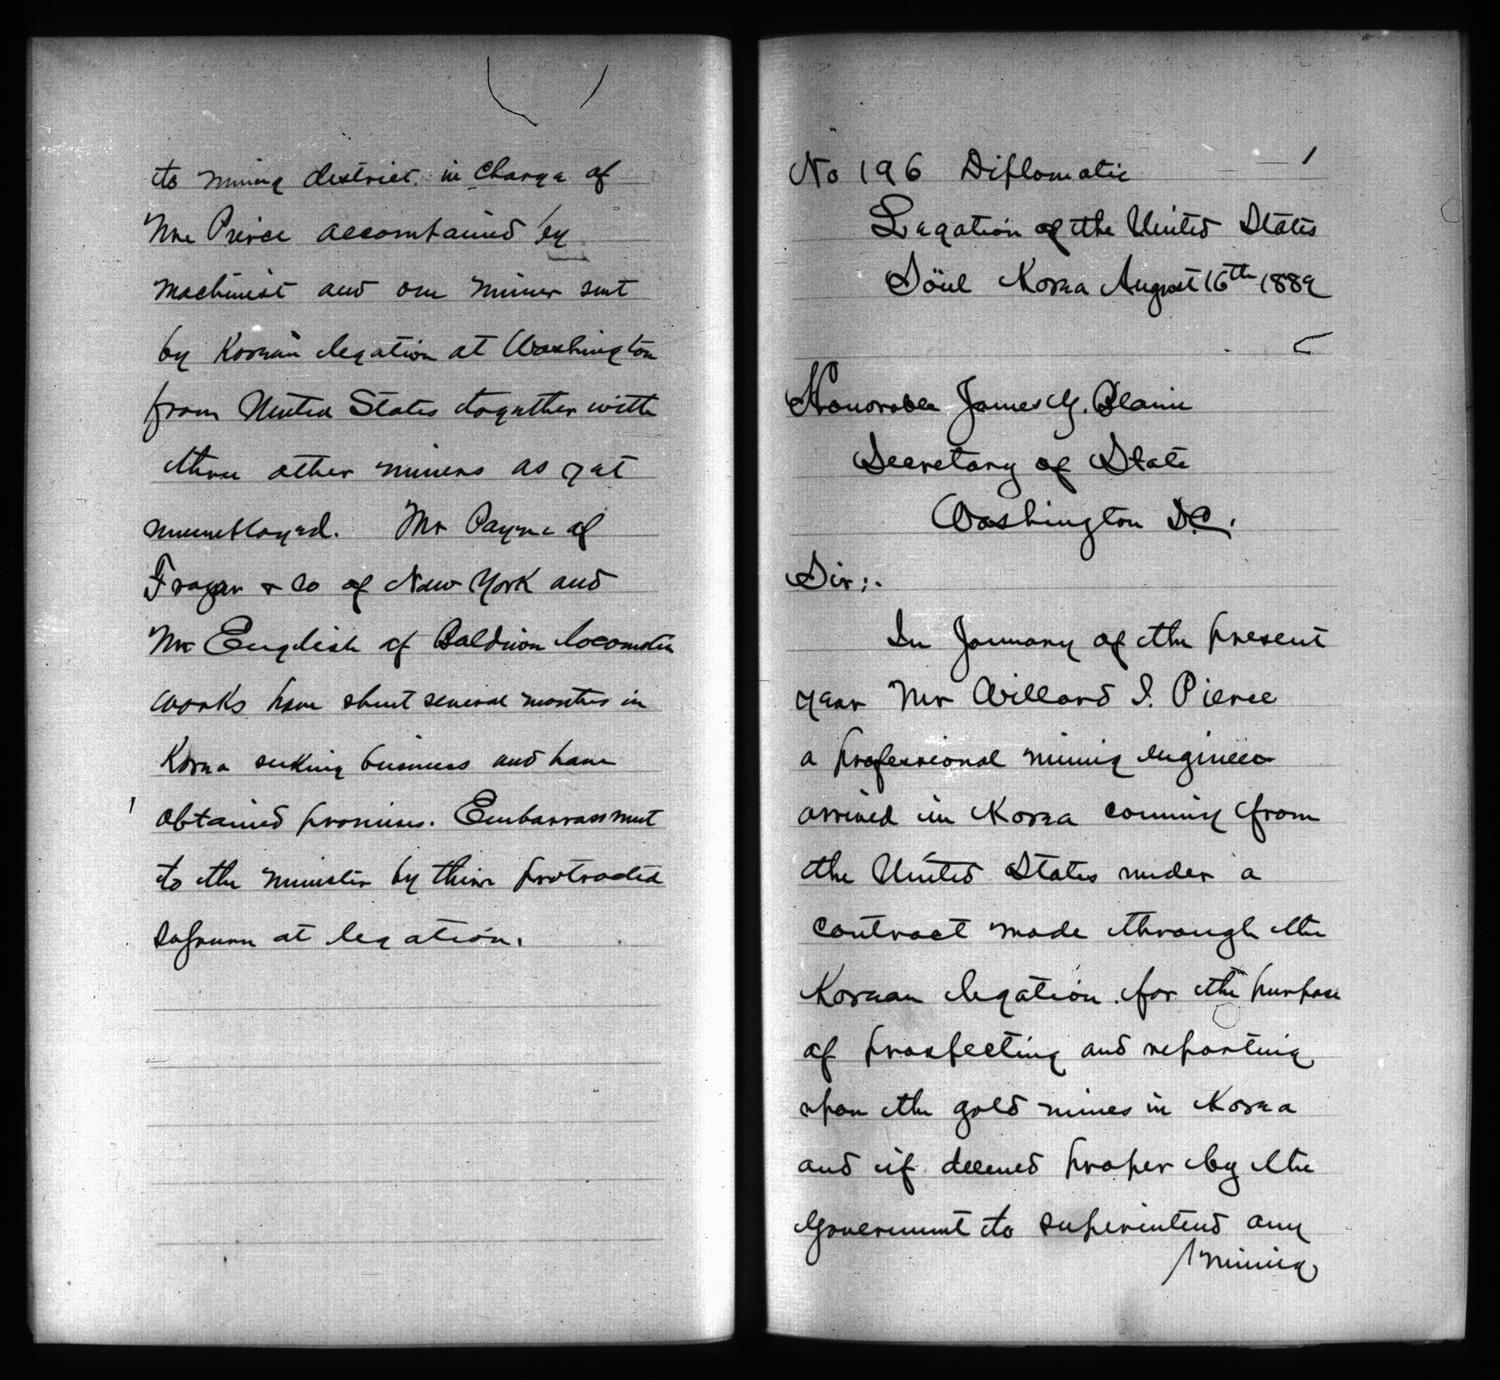 to mining district in charge of
Mr Pierce accompanied by
machinist and one miner sent
by Korean legation at Washington
from United States together with
three other miners as yet
unemployed. Mr Payne of
Frazar & Co of New York and
Mr English of Baldwin locomotive
works have spent several months in
Korea seeking business and have
obtained promises. Embarrassment
to the minister by their protracted
sojourn at legation.
No 196 Diplomatic
Legation of the United States
Söul Korea August 16th 1889
Honorable James G. Blaine
Secretary of State
Washington D.C.
Sir:.
In January of the present
year Mr Willard I. Pierce
a professional mining engineer
arrived in Korea coming from
the United States under a
contract made through the
Korean legation for the purpose
of prospecting and reporting
upon the gold mines in Korea
and if deemed proper by the
Government to superintend any
/mining